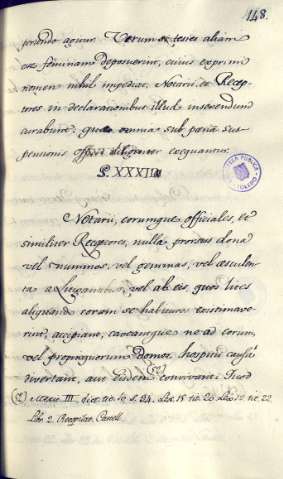 148.
priendo agunt. Verum ex testes aliam
esse feminam deposuerint, cuius exprimi
nomen nihil impediat, Notarii, et Recep
tores in declarationibus illud inserendum
curabunt: quae omnia sub pœna sus
pensionis officii diligenter exequantur.
§. XXXIII
Notarii, eorumque officiales, et
similiter Receptores, nulla prorsus dona
vel nummos, vel gemmas, vel æsculen
ta a litigantibus, vel ab eis, quos lites
aliquando coram se habituros existimave
rint, accipiant, caveantque ne ad eorum,
vel propinquorum domos hospitii causâ
divertant, aut eisdem convivant: Quod
lib. 2. Recopilat. Castell.